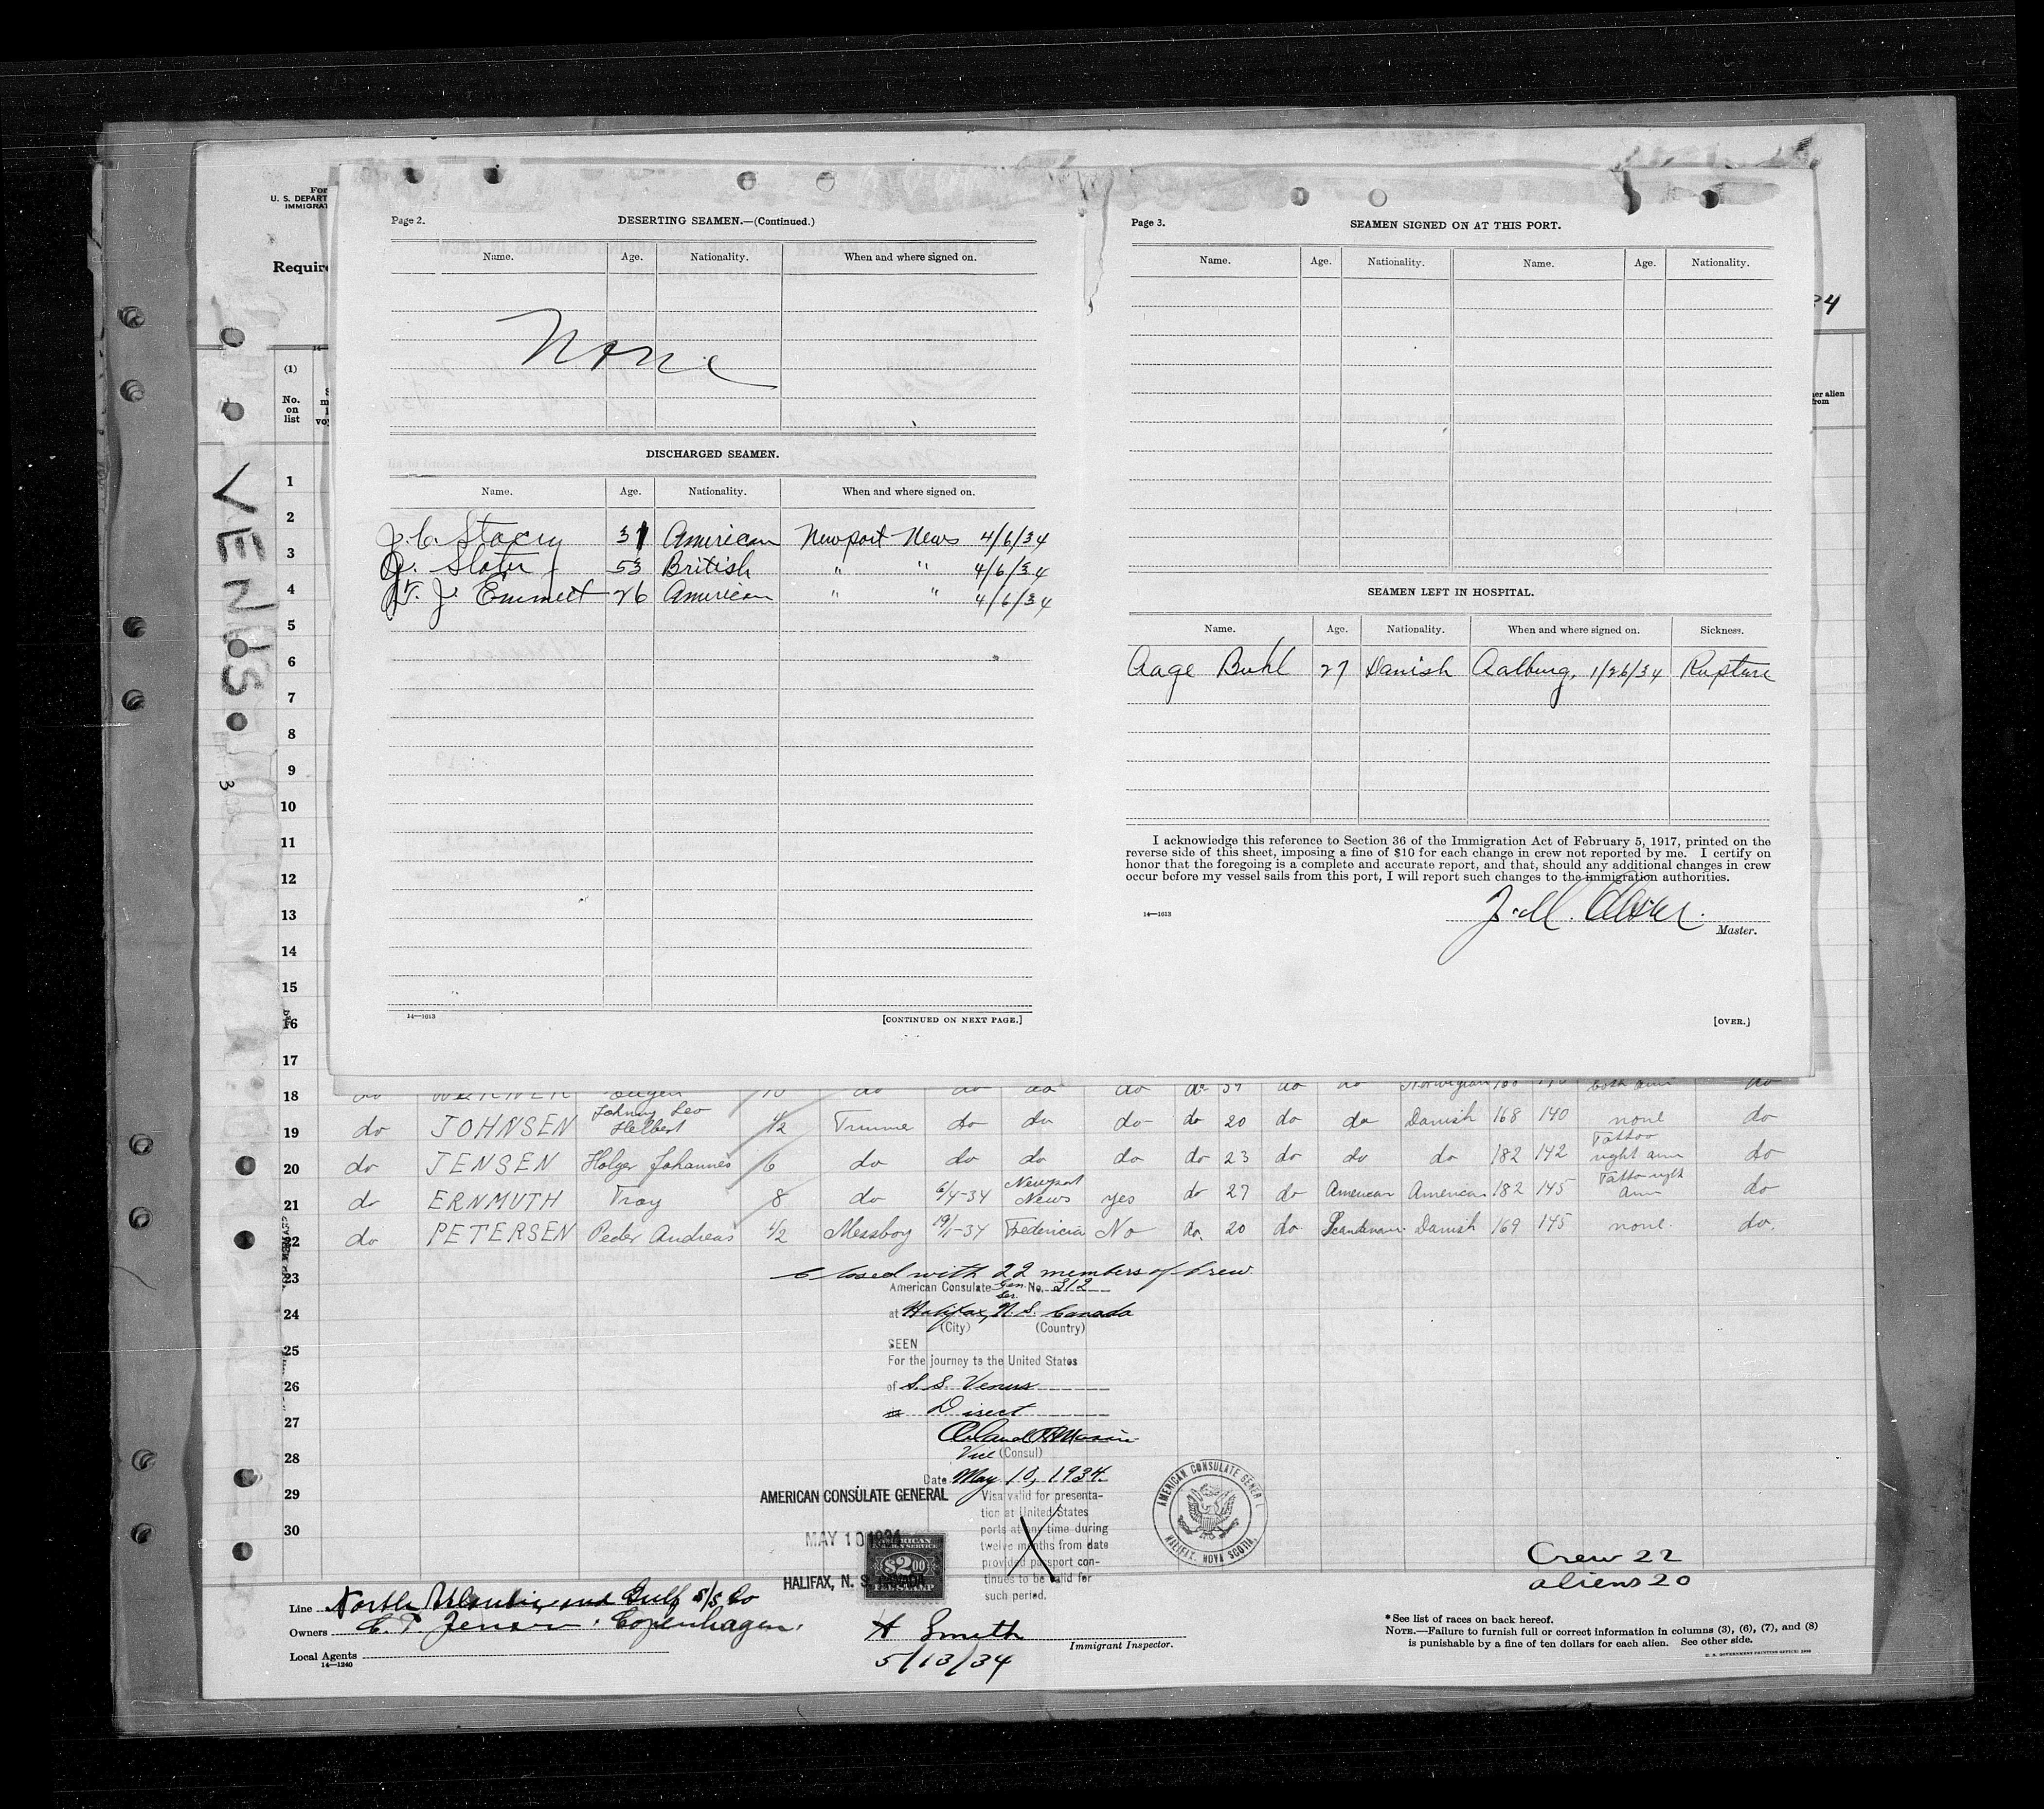 For
U. S. DEPART
IMMIGRAT
Require
(1)
No.
on
list
VENUS.
3
Page 2.
DESERTING SEAMEN.—(Continued.)
Name. Age. Nationality. When and where signed on.
None
DISCHARGED SEAMEN.
Name. Age. Nationality. When and where signed on.
J. C. Stacey 31 American Newport News 4/6/34
Slater 53 British " " 4/6/34
J. Emmett 26 American " " 4/6/34
14—1613
[CONTINUED ON NEXT PAGE.]
Page 3.
SEAMEN SIGNED ON AT THIS PORT.
Name. Age. Nationality. Name. Age. Nationality.
SEAMEN LEFT IN HOSPITAL.
Name. Age. Nationality. When and where signed on. Sickness.
Aage Buhl 27 Danish Aalburg, 1/26/34 Rupture
I acknowledge this reference to Section 36 of the Immigration Act of February 5, 1917, printed on the
reverse side of this sheet, imposing a fine of $10 for each change in crew not reported by me. I certify on
honor that the foregoing is a complete and accurate report, and that, should any additional changes in crew
occur before my vessel sails from this port, I will report such changes to the immigration authorities.
14—1613
Master.
[OVER.]
4
her alien
from
1
2
3
4
5
6
7
8
9
10
11
12
13
14
15
16
17
18
19 do JOHNSEN Johnny Leo Helbert 1/2 Trimmer do do do do 20 do do Danish 168 140 none do
20 do JENSEN Holger Johannes 6 do do do do do 23 do do do 182 142 Tattoo right arm do
21 do ERNMUTH Troy 8 do 6/4-34 Newport News yes do 27 do American American 182 145 Tattoo right arm do
22 do PETERSEN Peder Andreas 1/2 Messboy 19/1-34 Fredericia No do. 20 do Scandinav. Danish 169 145 none do.
23
24
25
26
27
28
29
30
Closed with 22 members of crew.
American Consulate Gen. No. 312
Ser.
at Halifax, N. S. Canada
(City) (Country)
SEEN
For the journey to the United States
of S. S. Venus
Direct
Vice (Consul)
Date May 10, 1934.
Visa valid for presenta-
tion at United States
ports at any time during
twelve months from date
provided passport con-
tinues to be valid for
such period.
AMERICAN CONSULATE GENERAL
MAY 10 1934
HALIFAX, N. S. CANADA
AMERICAN
$2.00
FEE STAMP
AMERICAN CONSULATE GENERAL
HALIFAX, NOVA SCOTIA.
Crew 22
aliens 20
Line North Atlantic and Gulf S/S Co
Owners C. P. Jensen. Copenhagen.
Local Agents
14—1240
H Smith
Immigrant Inspector.
5/13/34
*See list of races on back hereof.
NOTE.—Failure to furnish full or correct information in columns (3), (6), (7), and (8)
is punishable by a fine of ten dollars for each alien. See other side.